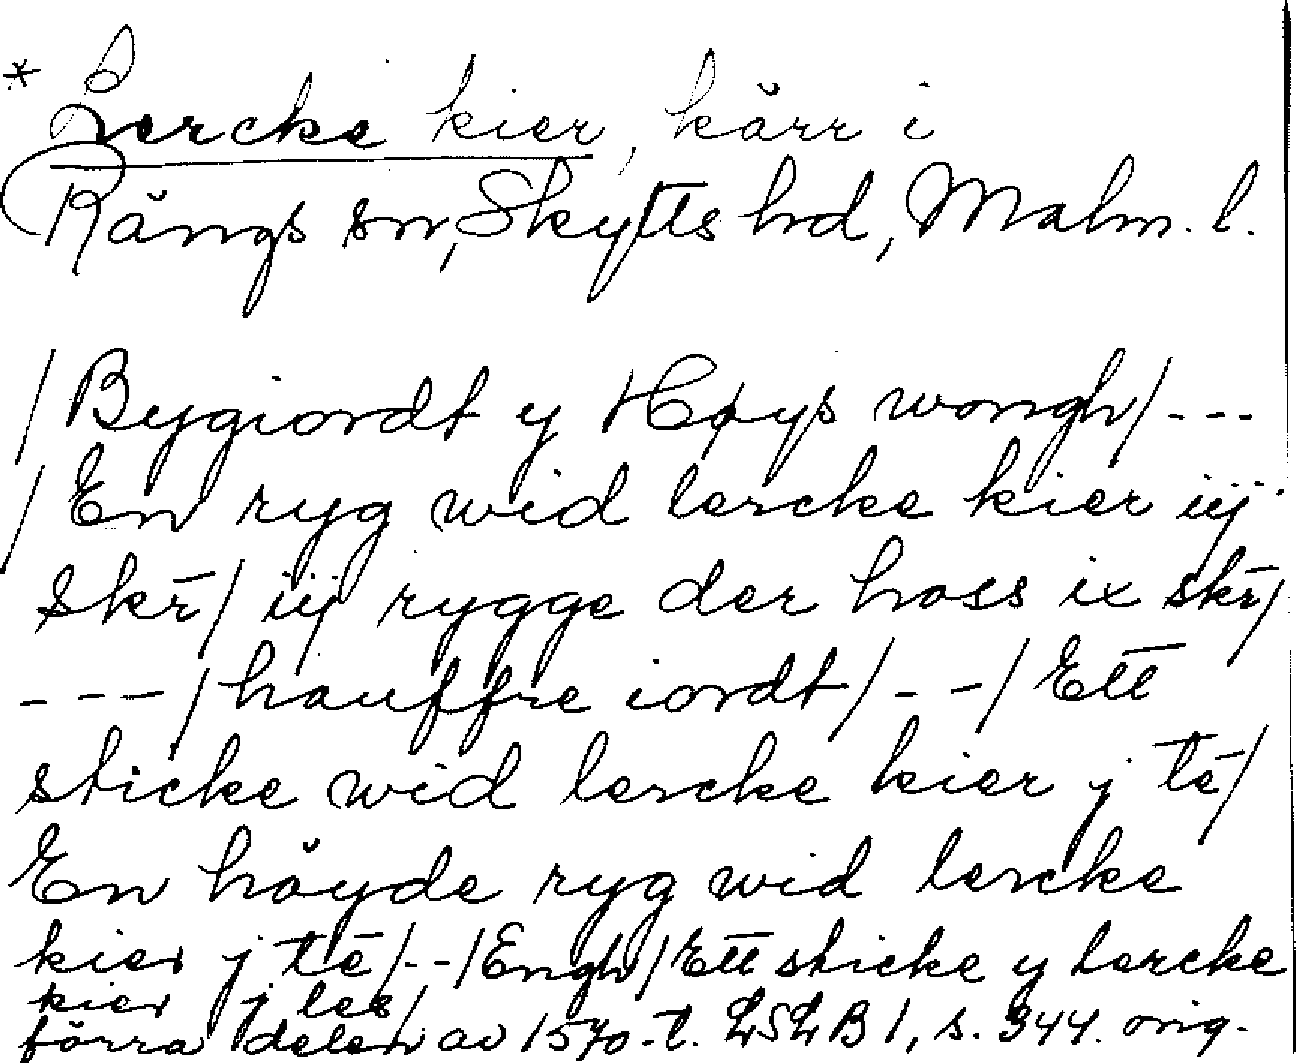 * Lercke kier, kärr i
Rängs sn, Skytts hd, Malm. l.
/Bygiordt y Høys wongh/ - - -
/En ryg wid lercke kier iij
skr̄/ iij rygge der hoss ix skr̄/
- - - /hauffre iordt/ - - / Ett
sticke wid lercke kier j tē/
En höyde ryg wid lercke
kier j tē/ - - /Engh/ Ett sticke y lercke
kier j les/
förra delen av 1570-t. LSLB 1, s. 344. orig.